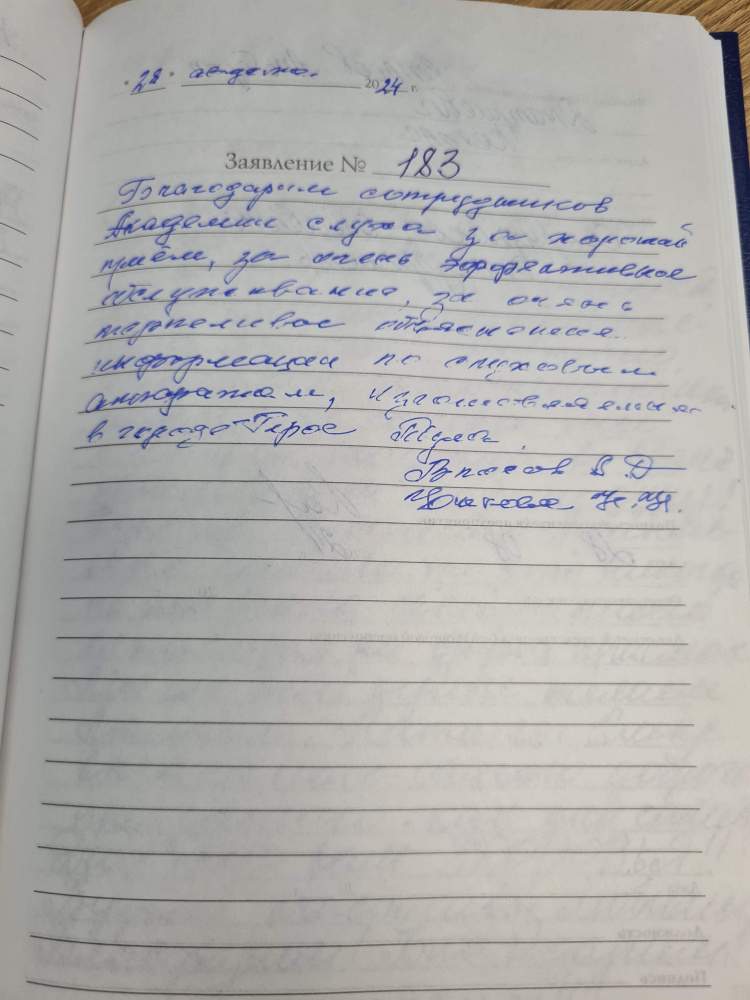 "28" августа 2024 г.
Заявление № 183
Благодарим сотрудников
Академии слуха за хороший
приём, за очень эффективное
обслуживание, за очень
терпеливое объяснение
информации по слуховым
аппаратам,
в городе Герое Тула.
Власов В.Д